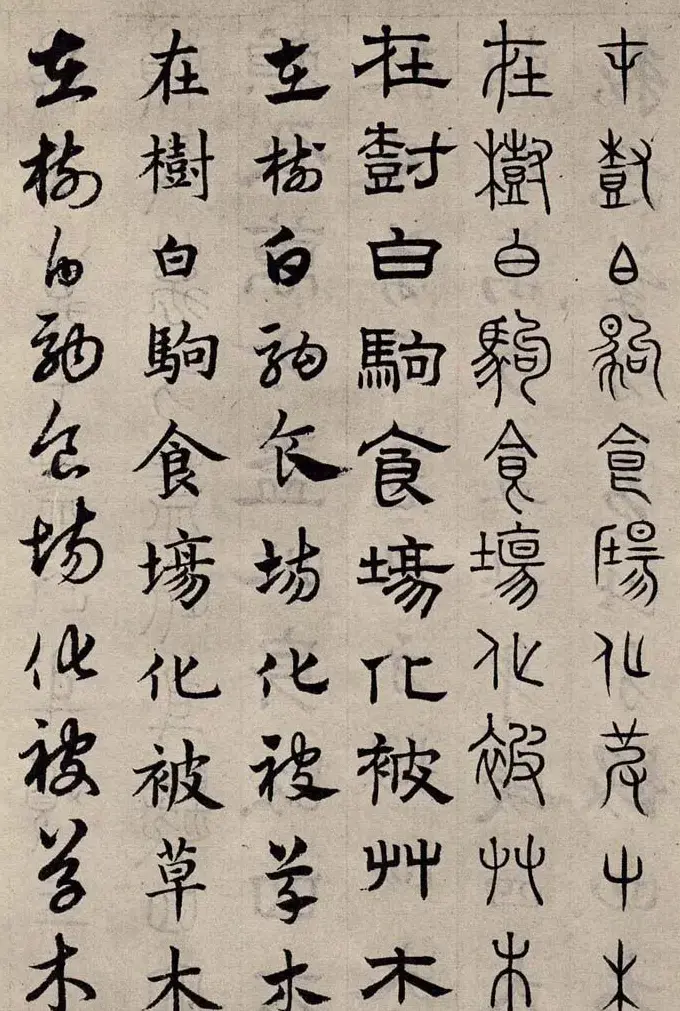 在樹白駒食場化被草木
在樹白駒食塲化被艸木
在尌白駒食塲化被艸木
在樹白駒食場化被草木
在樹白駒食塲化被草木
在樹白駒食場化被草木